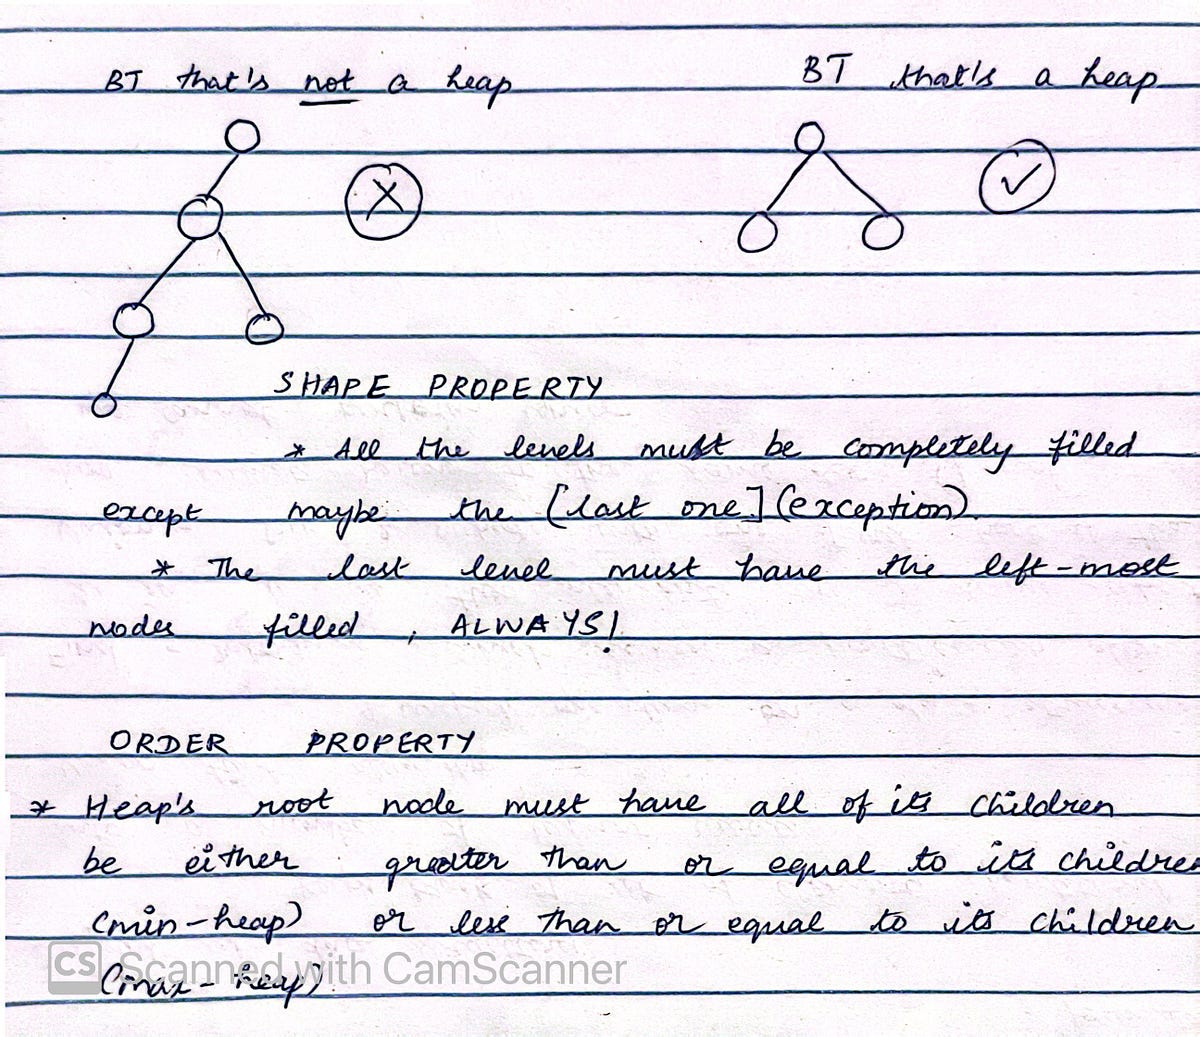 BT that's not a heap
BT that's a heap
SHAPE PROPERTY
* All the levels must be completely filled
except maybe the [last one] (exception).
* The last level must have the left-most
nodes filled, ALWAYS!
ORDER PROPERTY
* Heap's root node must have all of its children
be either greater than or equal to its children
(min-heap) or less than or equal to its children
(max-heap)
CS Scanned with CamScanner